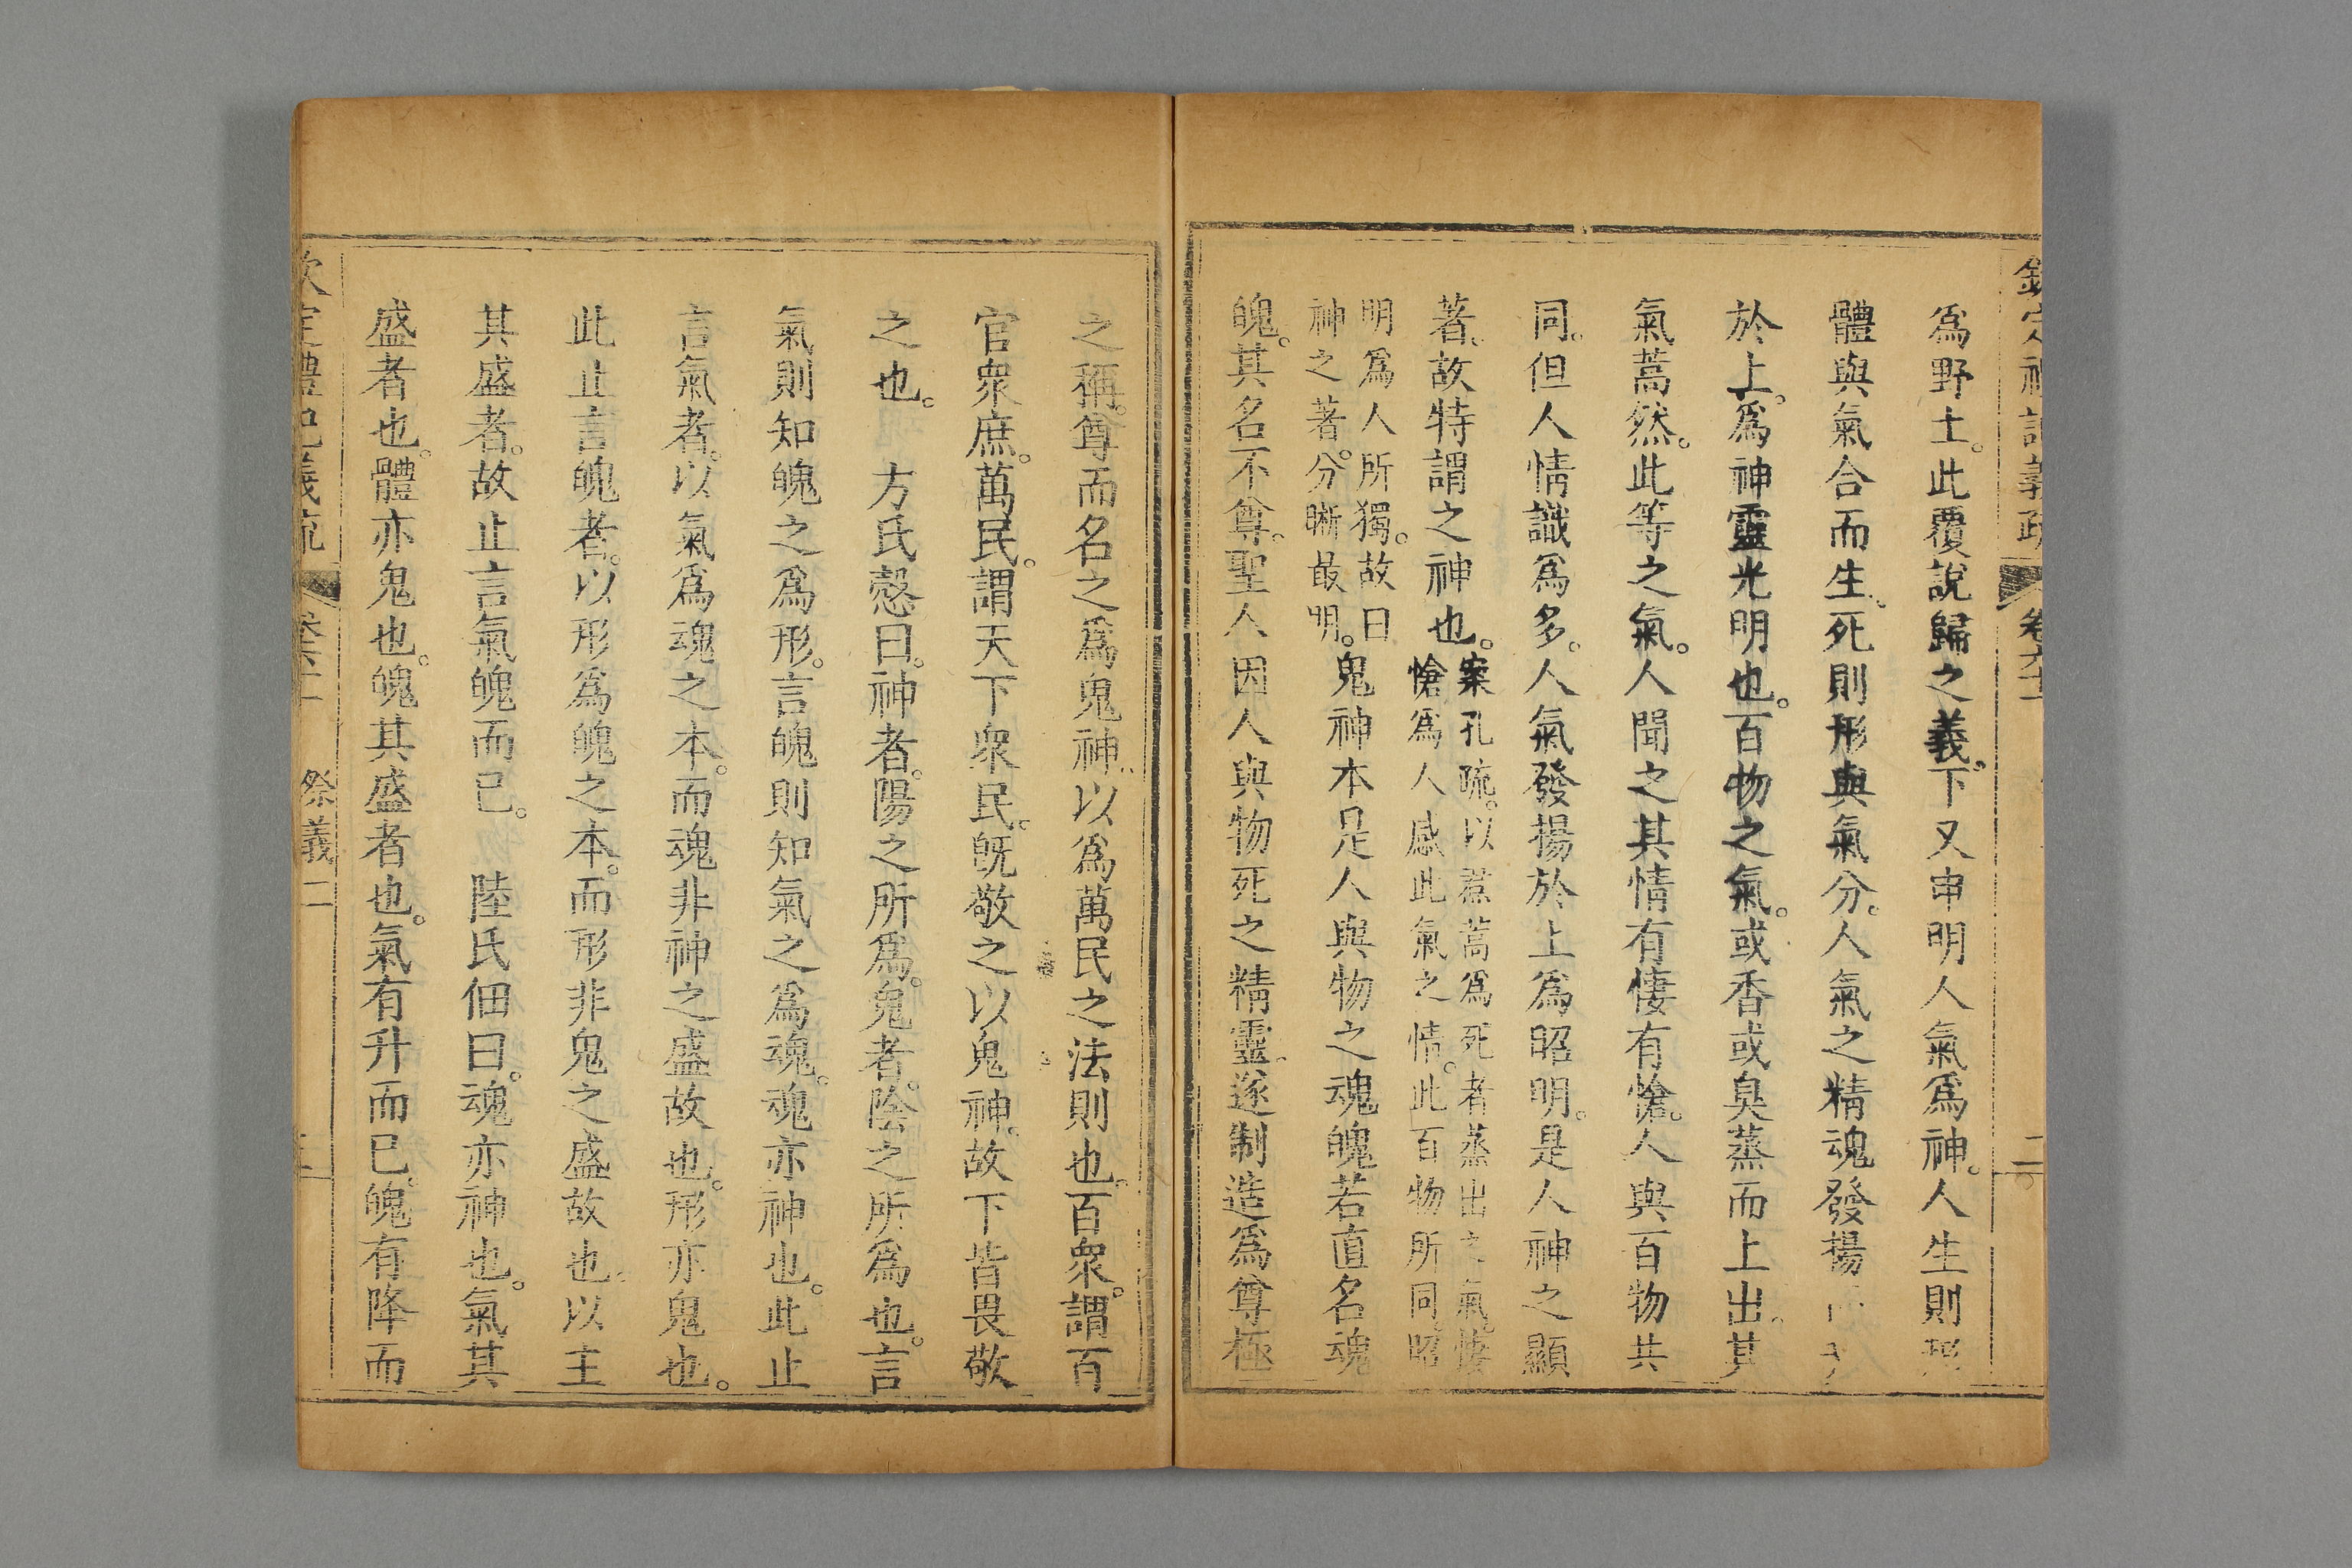 欽定禮記義疏 卷六十 二
爲野土。此覆說歸之義。下又申明人氣爲神。人生則形
體與氣合而生。死則形與氣分。人氣之精魂發揚
於上。爲神靈光明也。百物之氣。或香或臭蒸而上出。其
氣蒿然。此等之氣。人聞之其情有悽有愴。人與百物共
同。但人情識爲多。人氣發揚於上爲昭明。是人神之顯
著。故特謂之神也。案孔疏。以焄蒿爲死者蒸出之氣。悽
愴爲人感此氣之情。此百物所同。昭
明爲人所獨。故曰
神之著。分晣最明。鬼神本是人與物之魂魄若直名魂
魄。其名不尊。聖人因人與物死之精靈。遂制造爲尊極
之稱。尊而名之爲鬼神。以爲萬民之法則也。百衆。謂百
官衆庶。萬民。謂天下衆民。旣敬之以鬼神。故下皆畏敬
之也。 方氏慤曰。神者。陽之所爲。鬼者。陰之所爲也。言
氣則知魄之爲形。言魄則知氣之爲魂。魂亦神也。此止
言氣者。以氣爲魂之本。而魂非神之盛故也。形亦鬼也。
此止言魄者。以形爲魄之本。而形非鬼之盛故也。以主
其盛者。故止言氣魄而已。 陸氏佃曰。魂亦神也。氣其
盛者也。體亦鬼也。魄其盛者也。氣有升而已。魄有降而
欽定禮記義疏 卷六十 祭義二